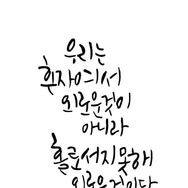 우리는
혼자여서
외로운것이
아니라
홀로서지못해
외로운것이다